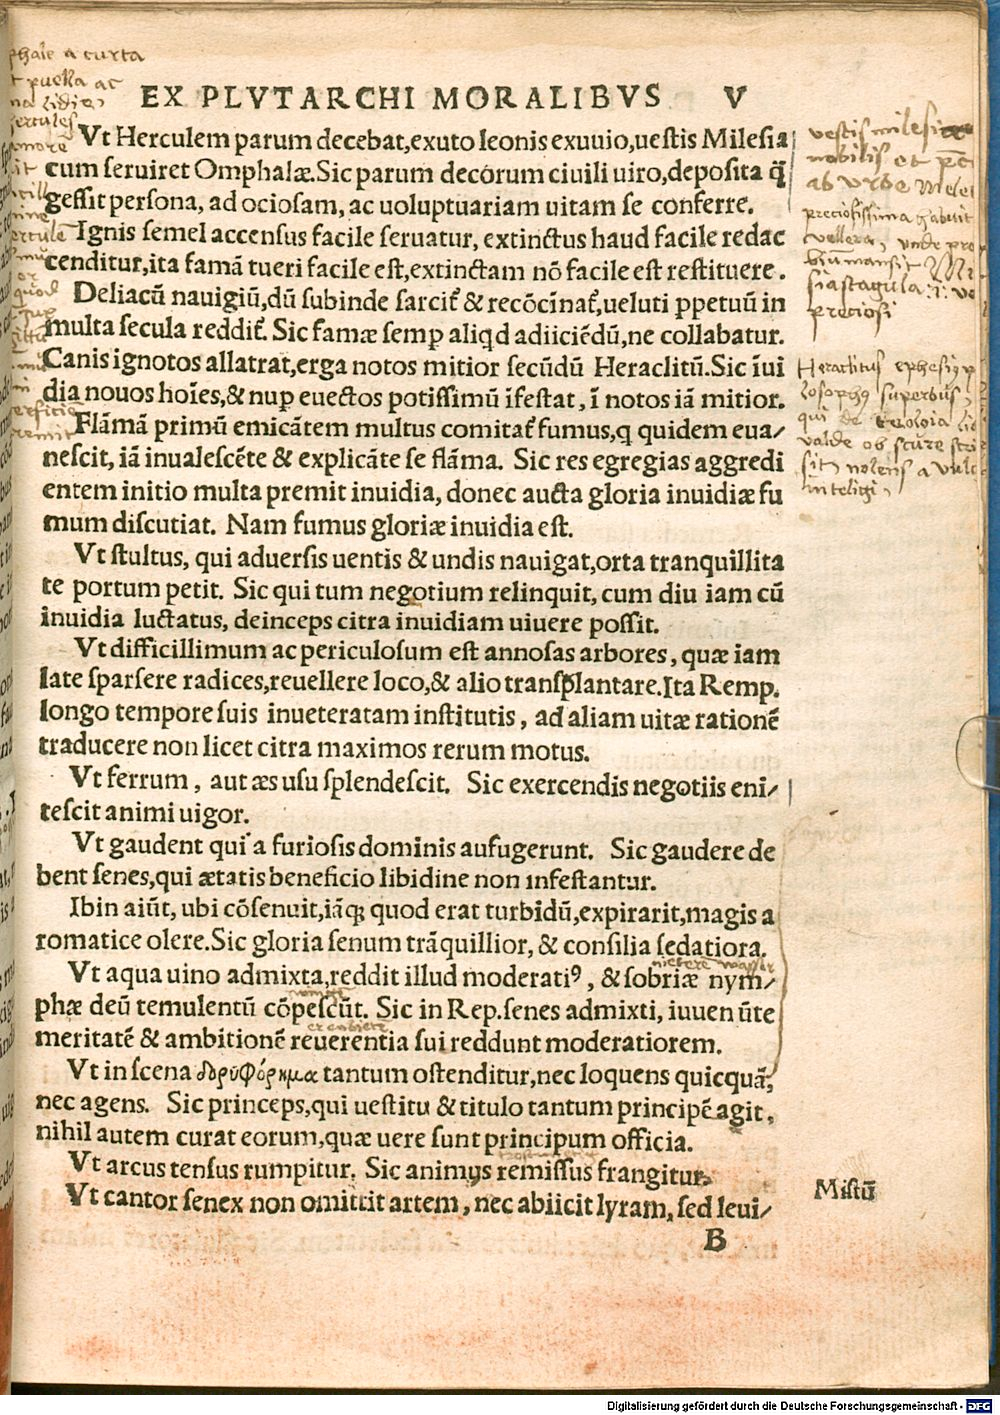 EX PLVTARCHI MORALIBVS V
Vt Herculem parum decebat,exuto leonis exuuio,uestis Milesia
cum seruiret Omphalæ.Sic parum decorum ciuili uiro,deposita q̃
gessit persona, ad ociosam, ac uoluptuariam uitam se conferre.
Ignis semel accensus facile seruatur, extinctus haud facile redac
cenditur,ita famã tueri facile est,extinctam nõ facile est restituere.
Deliacũ nauigiũ,dũ subinde sarcit᷑ & recõcĩnat᷑,ueluti ꝑpetuũ in
multa secula reddit᷑. Sic famæ semꝑ aliqd adiiciẽdũ,ne collabatur.
Canis ignotos allatrat,erga notos mitior secũdũ Heraclitũ.Sic ĩui
dia nouos hoĩes,& nuꝑ euectos potissimũ ĩfestat, ĩ notos iã mitior.
Flãmã primũ emicãtem multus comitat᷑ fumus,q quidem eua/
nescit, iã inualescẽte & explicãte se flãma. Sic res egregias aggredi
entem initio multa premit inuidia, donec aucta gloria inuidiæ fu
mum discutiat. Nam fumus gloriæ inuidia est.
Vt stultus, qui aduersis uentis & undis nauigat,orta tranquillita
te portum petit. Sic qui tum negotium relinquit, cum diu iam cũ
inuidia luctatus, deinceps citra inuidiam uiuere possit.
Vt difficillimum ac periculosum est annosas arbores, quæ iam
late sparsere radices,reuellere loco,& alio transplantare.Ita Remp.
longo tempore suis inueteratam institutis, ad aliam uitæ rationẽ
traducere non licet citra maximos rerum motus.
Vt ferrum, aut æs usu splendescit. Sic exercendis negotiis eni/
tescit animi uigor.
Vt gaudent qui a furiosis dominis aufugerunt. Sic gaudere de
bent senes,qui ætatis beneficio libidine non infestantur.
Ibin aiũt, ubi cõsenuit,iãq; quod erat turbidũ,expirarit,magis a
romatice olere.Sic gloria senum trãquillior, & consilia sedatiora.
Vt aqua uino admixta,reddit illud moderatiꝰ, & sobriæ nym/
phæ deũ temulentũ cõpescũt. Sic in Rep.senes admixti, iuuen ũte
meritatẽ & ambitionẽ reuerentia sui reddunt moderatiorem.
Vt in scena δορυφόρημα tantum ostenditur,nec loquens quicquã,
nec agens. Sic princeps,qui uestitu & titulo tantum principẽ agit,
nihil autem curat eorum,quæ uere sunt principum officia.
Vt arcus tensus rumpitur. Sic animus remissus frangitur.
Vt cantor senex non omittit artem, nec abiicit lyram, sed leui/
B
vestis milesi
nobilis et
ab urbe Mile
preciosissima habuit
vellera, unde pro
preciosi
Heraclitus ephesi
superbus,
qui de
valde obscure
sit nolens a vul
inteligi,
Mistũ
Digitalisierung gefördert durch die Deutsche Forschungsgemeinschaft - DFG